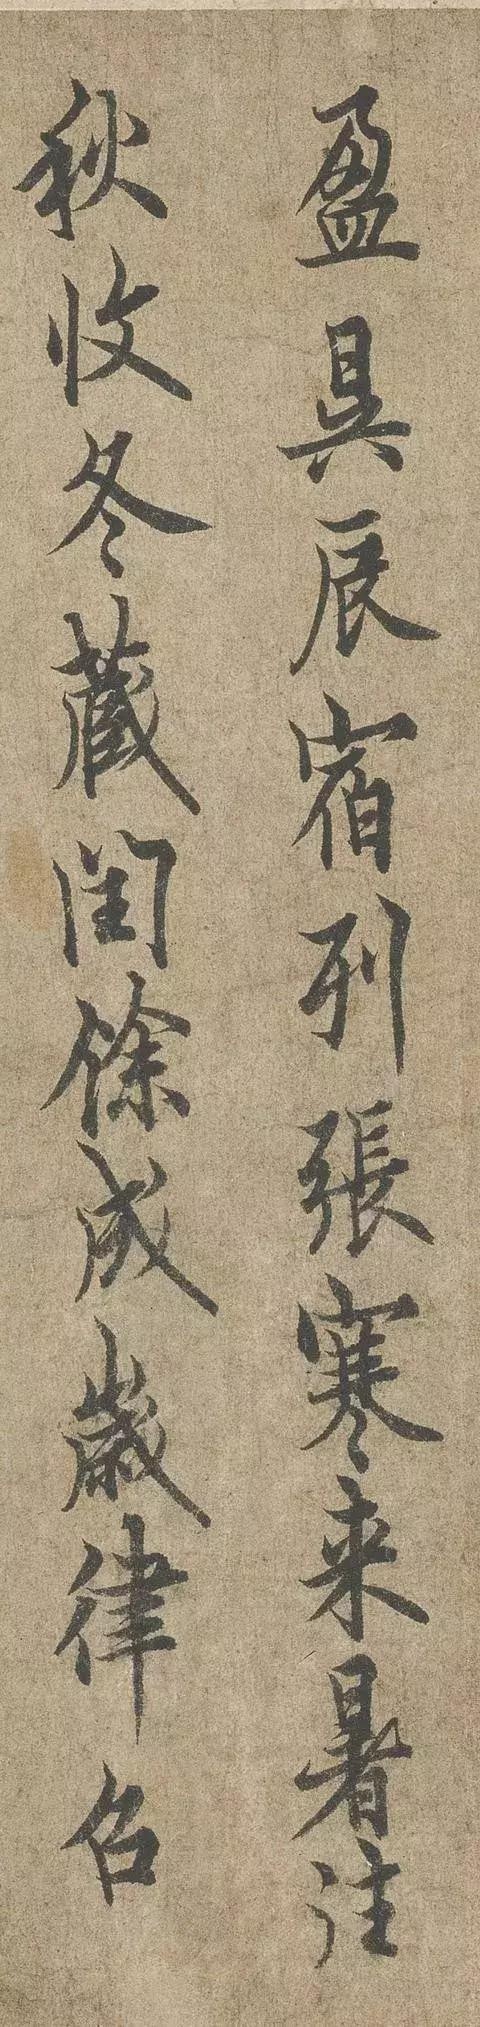 盈昃辰宿列張寒来暑往
秋收冬藏閏餘成歲律召